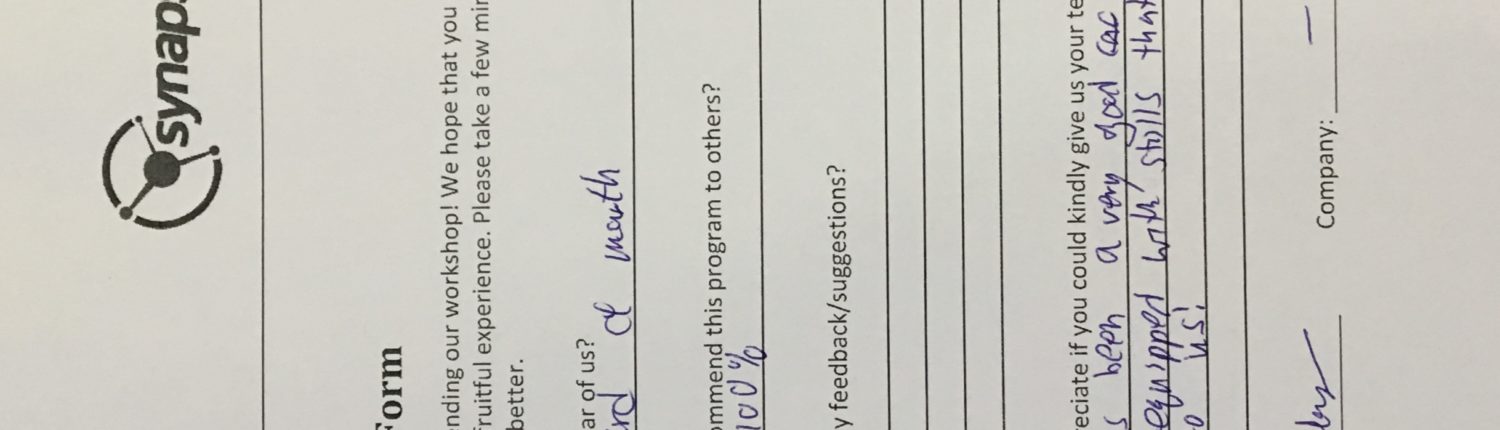 synaps
Form
nding our workshop! We hope that you
fruitful experience. Please take a few min
better.
ar of us?
rd of mouth
ommend this program to others?
100%
y feedback/suggestions?
reciate if you could kindly give us your te
s been a very good cac
equipped with skills that
o us!
Company: —